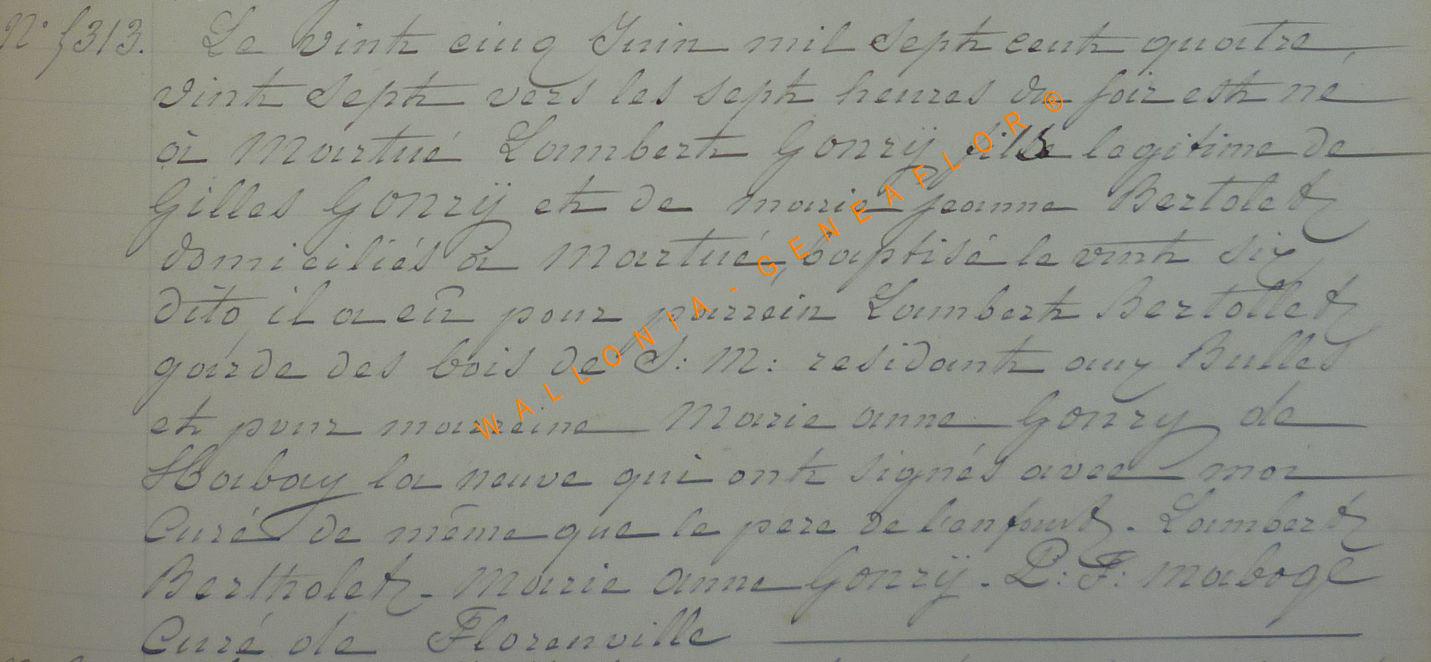 N° 1313. Le vint cinq Juin mil sept cent quatre
vint sept vers les sept heures du soir est né
à Martué Lambert Gonrÿ fils legitime de
Gilles Gonrÿ et de marie jeanne Bertolet
domiciliés à Martué, baptisé le vint six
dito il a eû pour parrein Lambert Bertollet
garde des bois de S: M: residant aux Bulles
et pour marreine Marie anne Gonry de
Habay la neuve qui ont signés avec moi
Curé de même que le pere de l'enfant. Lambert
Bertholet. Marie anne Gonrÿ. P: F: maboge
Curé de Florenville
WALLONIA - GENEAFLOR®